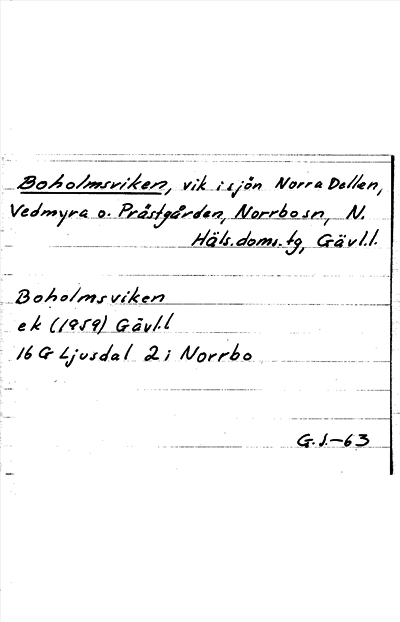 Boholmsviken, vik i sjön Norra Dellen,
Vedmyra o. Prästgården, Norrbo sn, N.
Häls. doms. tg, Gävl.l.
Boholmsviken
ek (1959) Gävl.l
16 G Ljusdal 2 i Norrbo
G.S.-63